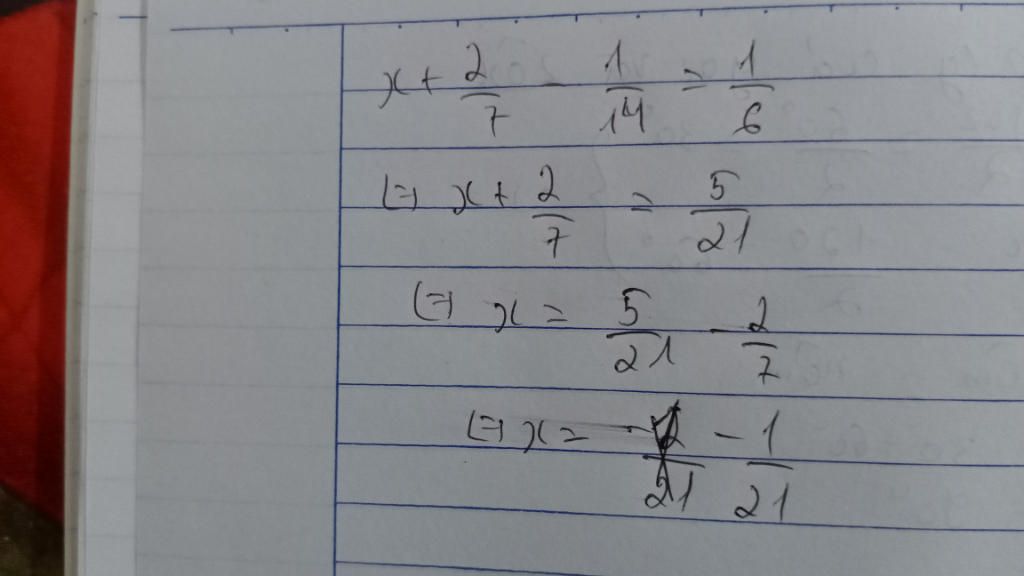 x + 2/7 - 1/14 = 1/6
(=) x + 2/7 = 5/21
(=) x = 5/21 - 2/7
(=) x = -1/21